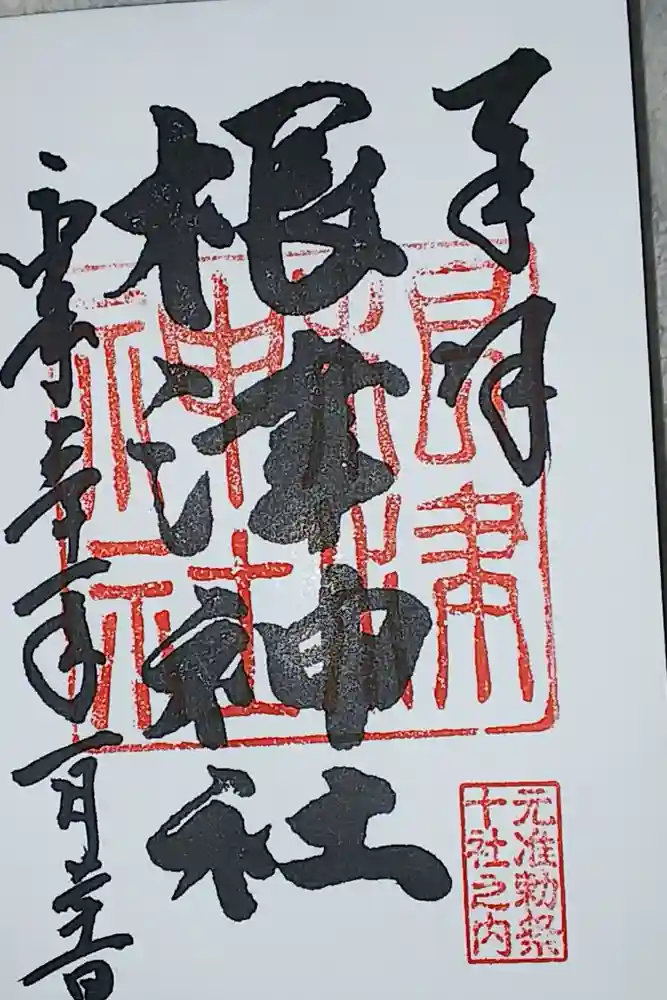 奉拝
根津神社
年一月
日
根津
神社
元准勅祭
十社之内